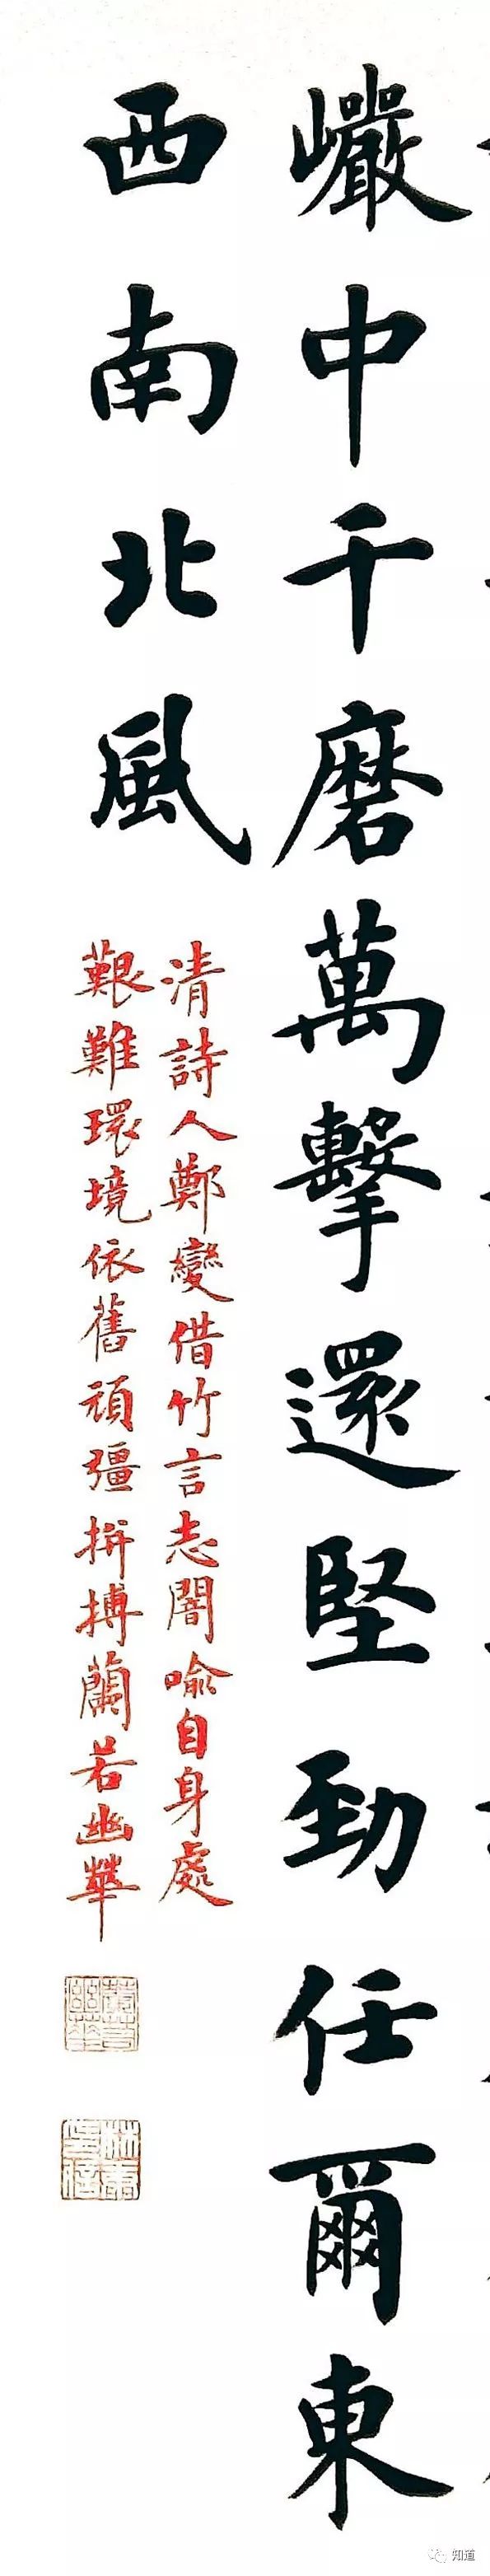 巗中千磨萬擊還堅勁任爾東
西南北風
清詩人鄭變借竹言志闇喻自身處
艱難環境依舊頑彊拼搏蘭若幽華
知道